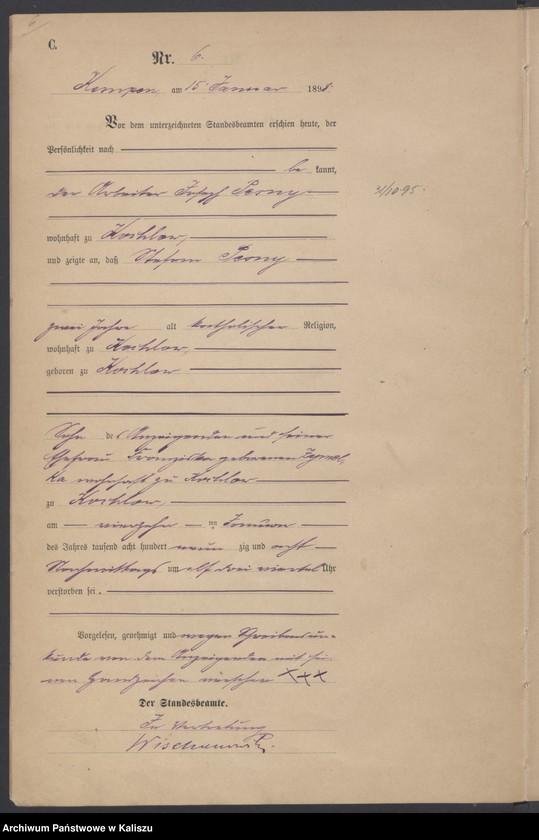 C.
Nr. 6.
Kempen am 15 Januar 1898.
Vor dem unterzeichneten Standesbeamten erschien heute, der
Persönlichkeit nach
be kannt,
der Arbeiter Joseph Perny
31/10 95.
wohnhaft zu
und zeigte an, daß Stefan Perny
zwei Jahre alt katholischer Religion,
wohnhaft zu
geboren zu
Sohn des Anzeigenden und seiner
Ehefrau Franziska geborenen
ka wohnhaft zu
zu
am vierzehn ten Januar
des Jahres tausend acht hundert neun zig und acht
Nachmittags um elf drei viertel Uhr
verstorben sei.
Vorgelesen, genehmigt und wegen Schreibensun-
kunde von dem Anzeigenden mit sei-
nen Handzeichen versehen XXX
Der Standesbeamte.
In Vertretung